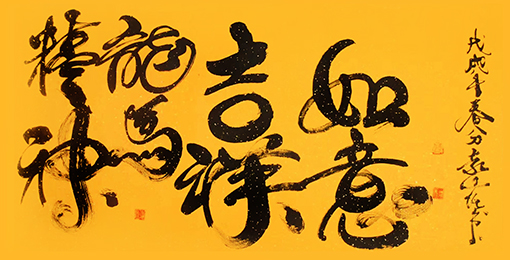 戊戌年春分
如意
吉祥
龍馬
精神